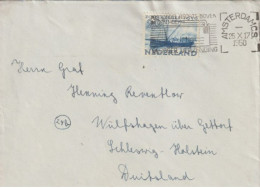 NEDERLAND
AMSTERDAM C.S.
25 X 17
1950
Herrn Graf
Henning Reventlow
Wulfshagen über Gettorf
Schleswig-Holstein
Duitsland